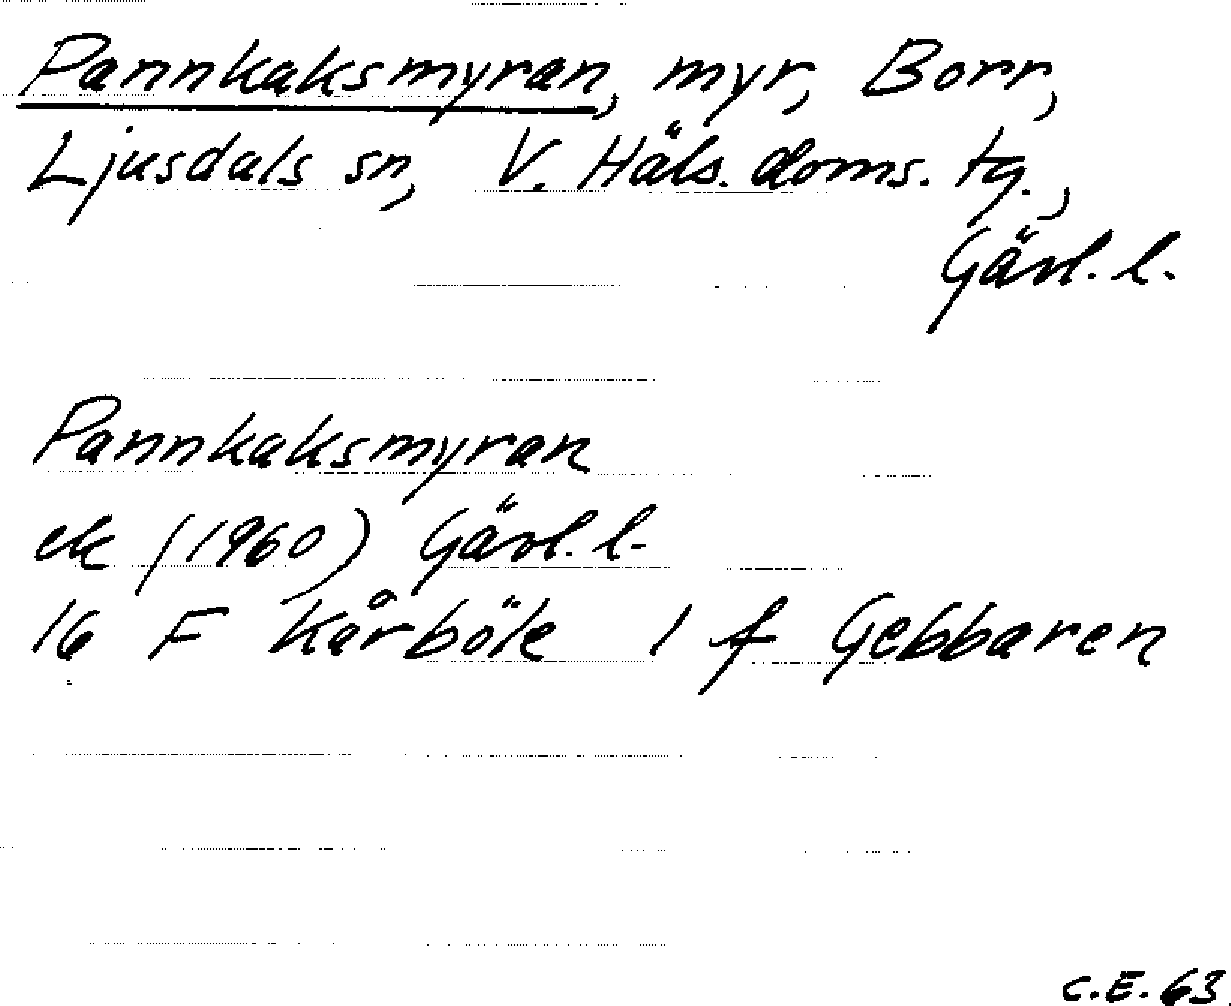 Pannkaksmyran, myr, Borr,
Ljusdals sn, V. Häls. doms. tg.,
Gävl. l.
Pannkaksmyran
ek (1960) Gävl. l.
16 F Kårböle 1 f Gebbaren
C.E. 63